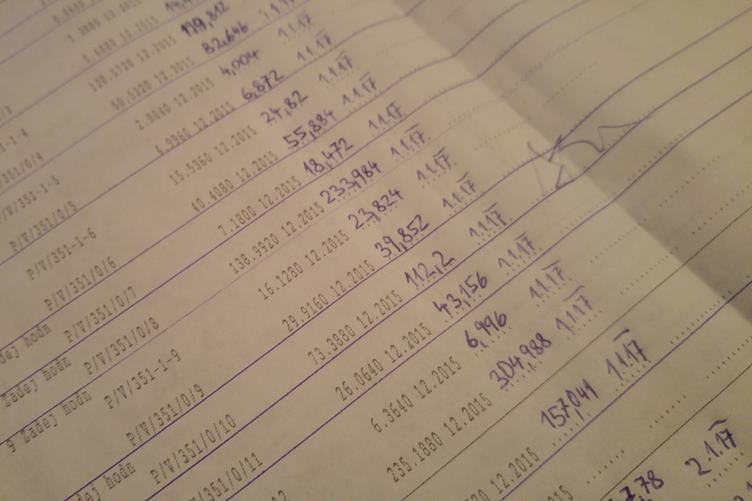 120.5720 12.2015 82,646 1.1.17
50.5920 12.2015 4,004 1.1.17
/V/351-1-5 2.0840 12.2015 6,872 1.1.17
P/V/351/0/5 4.9960 12.2015 24,82 1.1.17
P/V/351-1-6 15.5360 12.2015 55,884 1.1.17
P/V/351/0/6 40.4080 12.2015 18,472 1.1.17
P/V/351/0/7 7.1800 12.2015 233,984 1.1.17
hodn P/V/351/0/8 138.9920 12.2015 23,824 1.1.17
hodn P/V/351-1-9 16.1280 12.2015 39,852 1.1.17
9 Zadej hodn P/V/351/0/9 29.9160 12.2015 112,2 1.1.17
hodn P/V/351/0/10 73.3880 12.2015 43,156 1.1.17
/V/351/0/11 26.0640 12.2015 6,996 1.1.17
12 6.3640 12.2015 304,988 1.1.17
235.1880 12.2015 157,041 1.1.17
12.2015
7,78 2.1.17